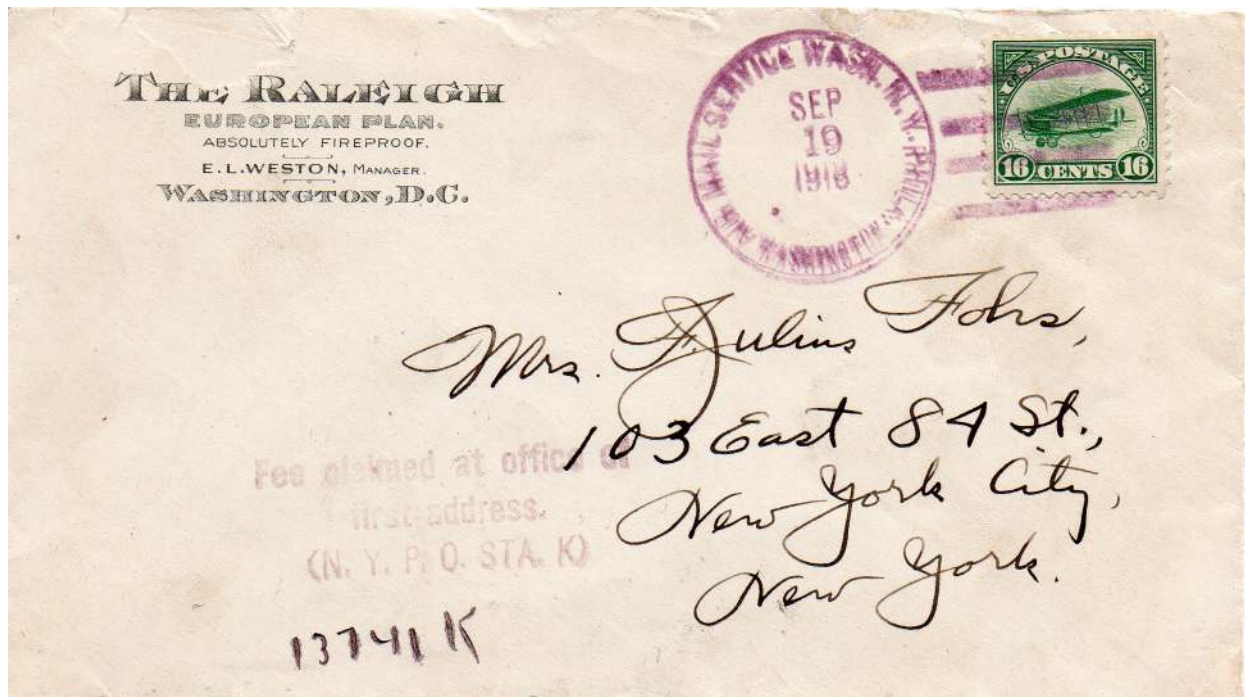 THE RALEIGH
EUROPEAN PLAN.
ABSOLUTELY FIREPROOF.
E.L.WESTON, MANAGER.
WASHINGTON, D.C.
AIR MAIL SERVICE WASH. N.Y. PHILA.
WASHINGTON
SEP
19
1918
U.S. POSTAGE
16 CENTS 16
Mrs. F. Julius Fohs,
103 East 84 St.,
New York City,
New York.
Fee claimed at office of
first address.
(N. Y. P. O. STA. K)
13741 K